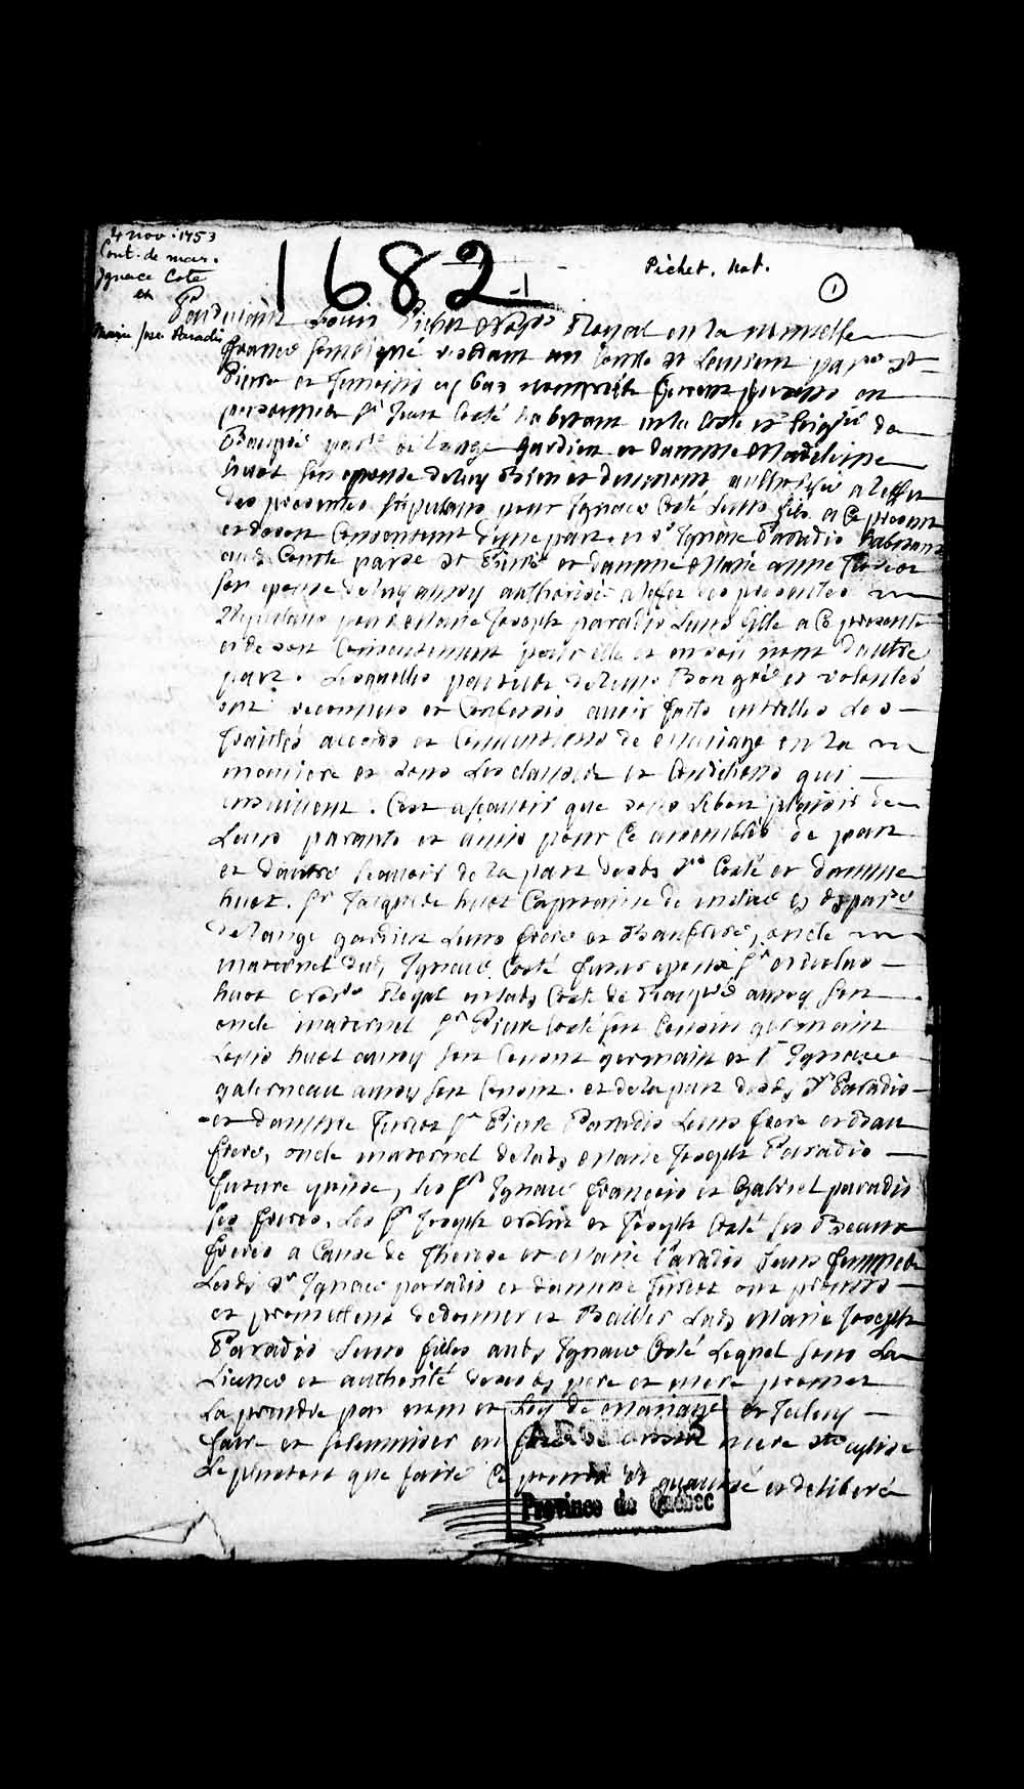 4 nov. 1753
Cont. de mar.
Ignace Cote
et
Marie Jose Paradis
1682
Pichet. Not.
1
Pardevant Louis Pichet Royal en la nouvelle
france soussigné residant au Comté St Laurent St
Pierre et en
personnes Sr Jean Costé habitant en la Coste et de
de lange gardien et damme Madeleine
huot son epouse de luy authorisée a leffet
des presentes pour Ignace Costé leurs fils a Ce present
et de son Consentement dune part et Sr Ignace Paradis habitant
aud. Comté St Pierre et damme Marie anne
son epouse de luy aussy authorisée a leffet des presentes
pour Marie Joseph paradis leurs fille a Ce presente
et de son Consentement pour elle et en son nom dautre
part. Lesquelles parties de leurs Bon gré et volontés
ont et Confessés avoir faits entrelles Les
traittés accords et de mariage en la
maniere et sous Les clauses et Conditions qui
ensuivent. Cest ascavoir que sous Le bon plaisir de
Leurs parants et amis pour Ce assemblés de part
et dautre scavoir de la part desds Srs Costé et damme
huot. Sr Jacques huot Capitaine de
de lange gardien Leurs frere et Beaufrere, oncle
maternel dud, Ignace Costé futur epoux Sr
huot Royal Coste de aussy son
oncle maternel Sr Pierre Costé son Cousin germain
Louis huot aussy son Cousin germain et Sr Ignace
galerneau aussy son Cousin. et de la part desds, Sr Paradis
et damme Sr Pierre Paradis Leurs frere et Beau
frere, oncle maternel de lads Marie Joseph Paradis
future epouse, les Srs Ignace françois et Gabriel paradis
ses freres, Les Srs Joseph et Joseph Costé ses Beaux
freres a Cause de Therese et Marie Paradis Leurs femmes
Lesds Sr Ignace paradis et damme ont promis
et promettent de donner et Bailler Lads Marie Joseph
Paradis Leurs filles auds Ignace Costé Lequel sous La
Licence et authorité desesds pere et mere promet
La prendre par nom et Loy de Mariage et Icelluy
faire et solemniser en face de mere Ste eglise
Le plustost que faire Ce poura et et deliberé
ARCHIVES
Province de Québec